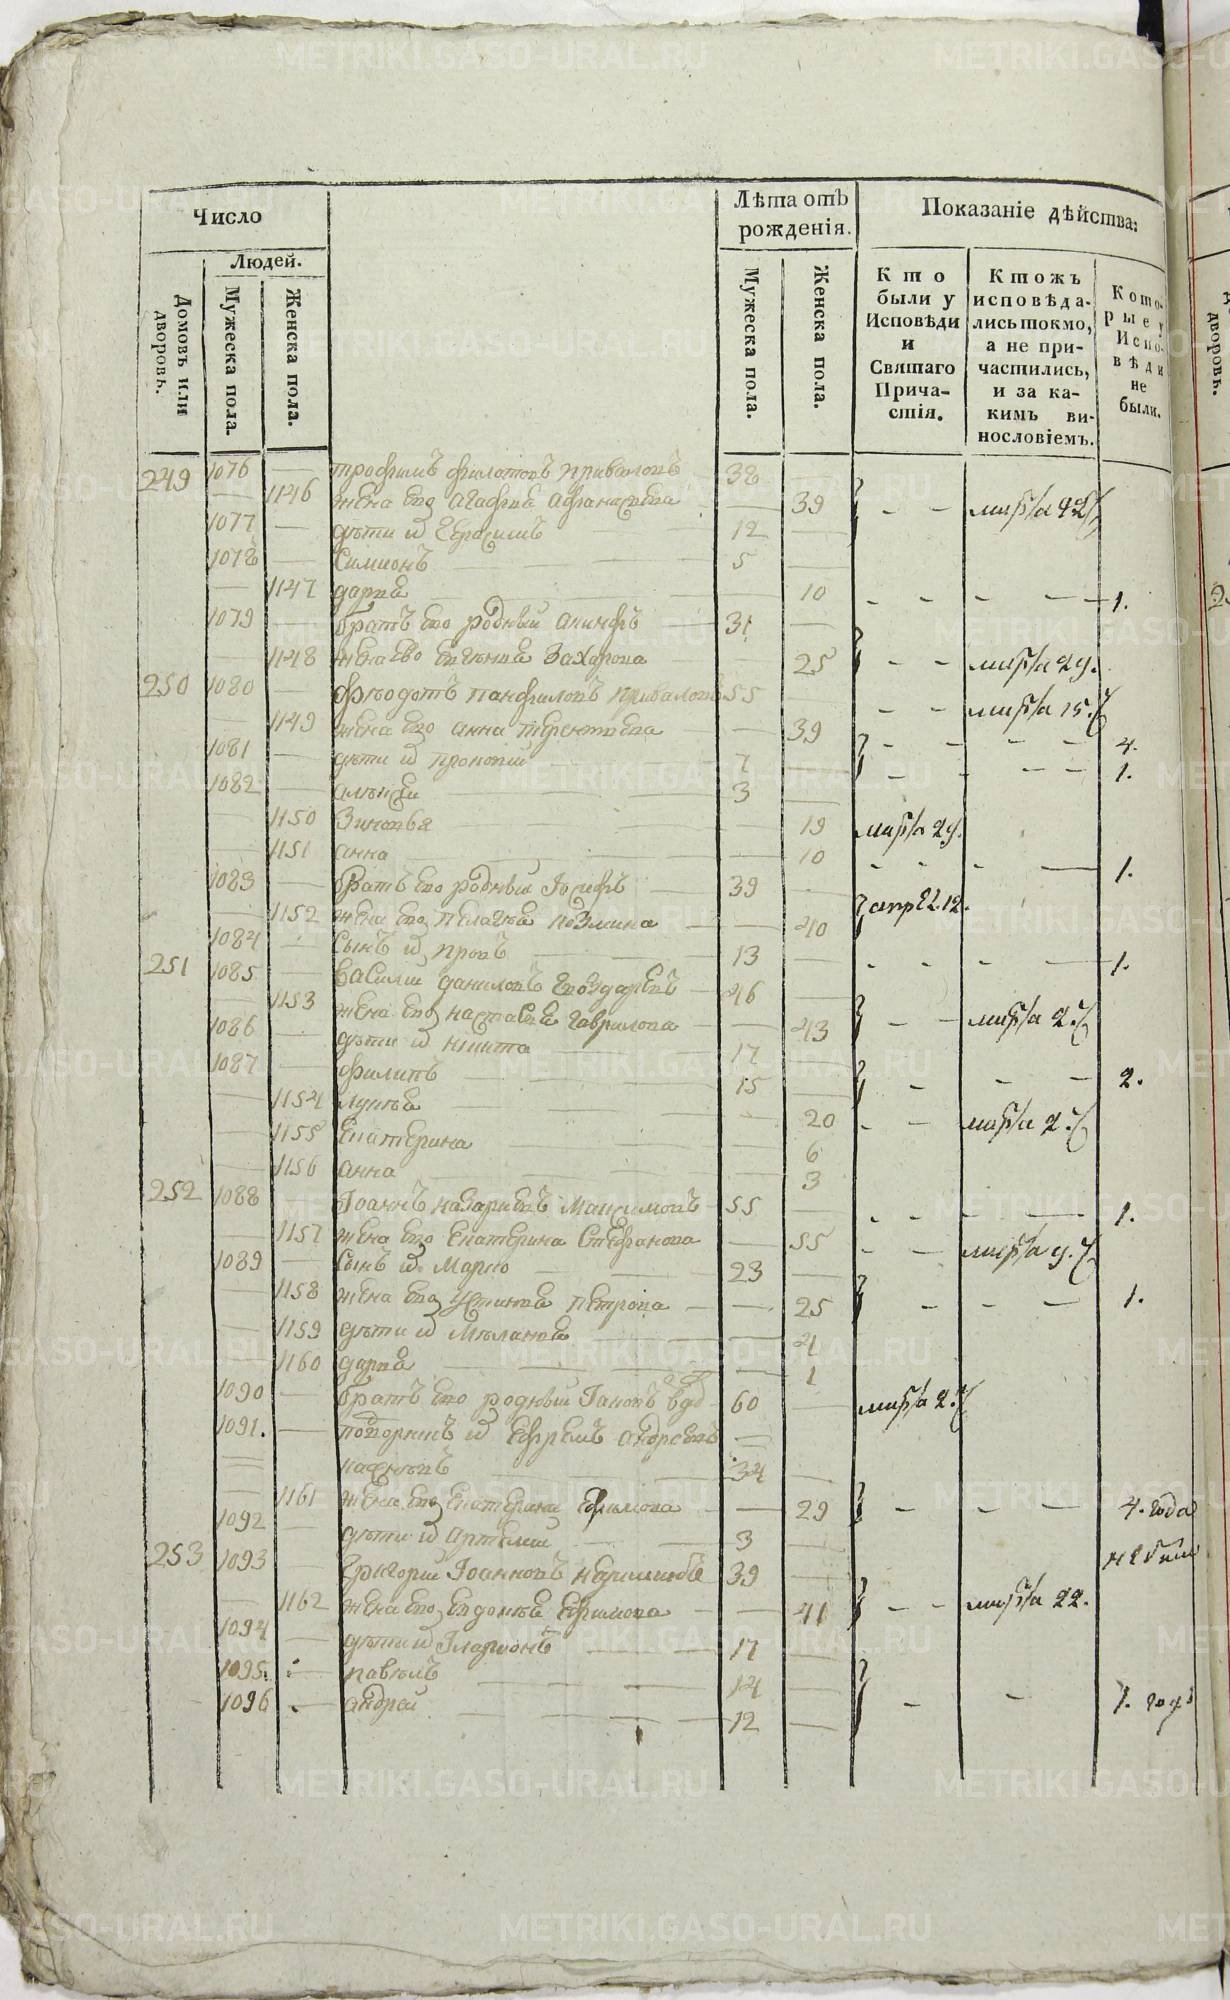 Число
Лѣта отъ рожденія.
Показаніе дѣйства:
Людей.
Домовъ или дворовъ.
Мужеска пола.
Женска пола.
Мужеска пола.
Женска пола.
Кто были у Исповѣди и Святаго Причастія.
Ктожъ исповѣдались токмо, а не причастились, и за какимъ винословіемъ.
Которые у Исповѣди не были.
249 1076 — трофимъ филатовъ приваловъ 38 —
— 1146 жена его агафия афанасиева — 39 марта
1077 — дѣти их Герасимъ 12 —
1078 — Симионъ 5 —
— 1147 дария — 10 1.
1079 — братъ его родныи 31 —
— 1148 жена ево евгения Захарова — 25 марта 29.
250 1080 — Феодотъ панфиловъ приваловъ 55 — марта 15.
— 1149 жена его анна терентиева — 39 4.
1081 — дѣти их прокопии 7 — 1.
1082 — алѣксеи 3 —
— 1150 Зиновья — 19 марта 29.
— 1151 анна — 10 1.
1083 — братъ его родныи Иосифъ 39 — апрел. 12.
— 1152 жена его пелагея козмина — 40
1084 — Сынъ их прова 13 — 1.
251 1085 — василии даниловъ 46 —
— 1153 жена его настасия гаврилова — 43 марта
1086 — дѣти их никита 17 —
1087 — филипъ 15 — 2.
— 1154 лукея — 20 марта
— 1155 екатерина — 6
— 1156 анна — 3
252 1088 — Іоаннъ назариевъ Максимовъ 55 — 1.
— 1157 жена его екатерина Стефанова — 55 марта
1089 — Сынъ их Марко 23 —
— 1158 жена его устиния петрова — 25 1.
— 1159 дѣти их Мѣлания — 4
— 1160 дария — 1
1090 — братъ его родныи Іаковъ вдо 60 — марта
1091. — их ефремъ андреевъ
34 —
— 1161 жена его екатерина — 29 4. года
1092 — дѣти их артемии 3 — не были
253 1093 — Григории Іоанновъ 39 —
— 1162 жена его евдокея ефимова — 41 марта 22.
1094 — дѣти их Иларионъ 17 —
1095. — павѣлъ 14 —
1096 — андреи 12 — 1. годъ
METRIKI.GASO-URAL.RU